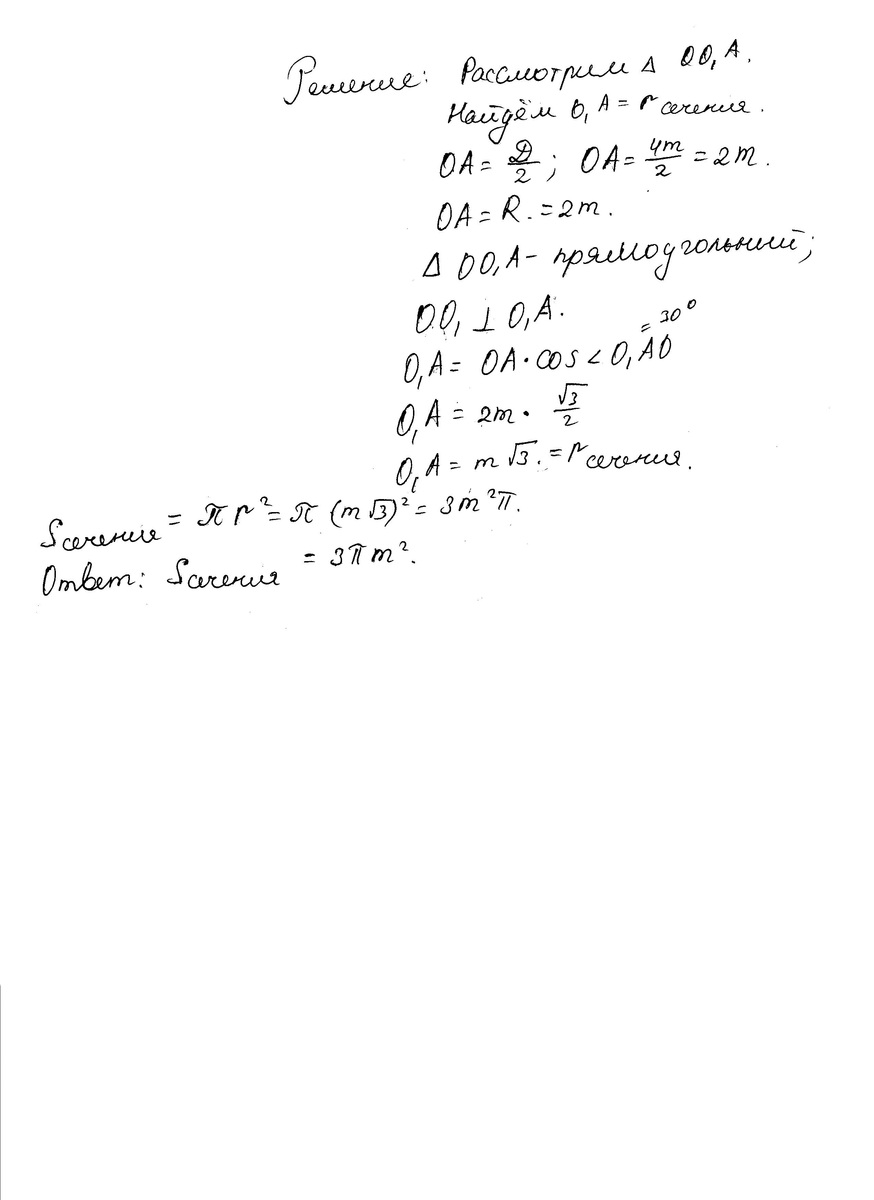 Решение: Рассмотрим Δ OO₁A.
Найдём O₁A = r сечения.
OA = Д/2; OA = 4m/2 = 2m.
OA = R. = 2m.
Δ OO₁A - прямоугольный;
OO₁ ⊥ O₁A.
O₁A = OA · cos < O₁AO = 30°
O₁A = 2m · √3/2
O₁A = m√3. = r сечения.
Sсечение = πr² = π(m√3)² = 3m²π.
Ответ: Sсечения = 3πm².